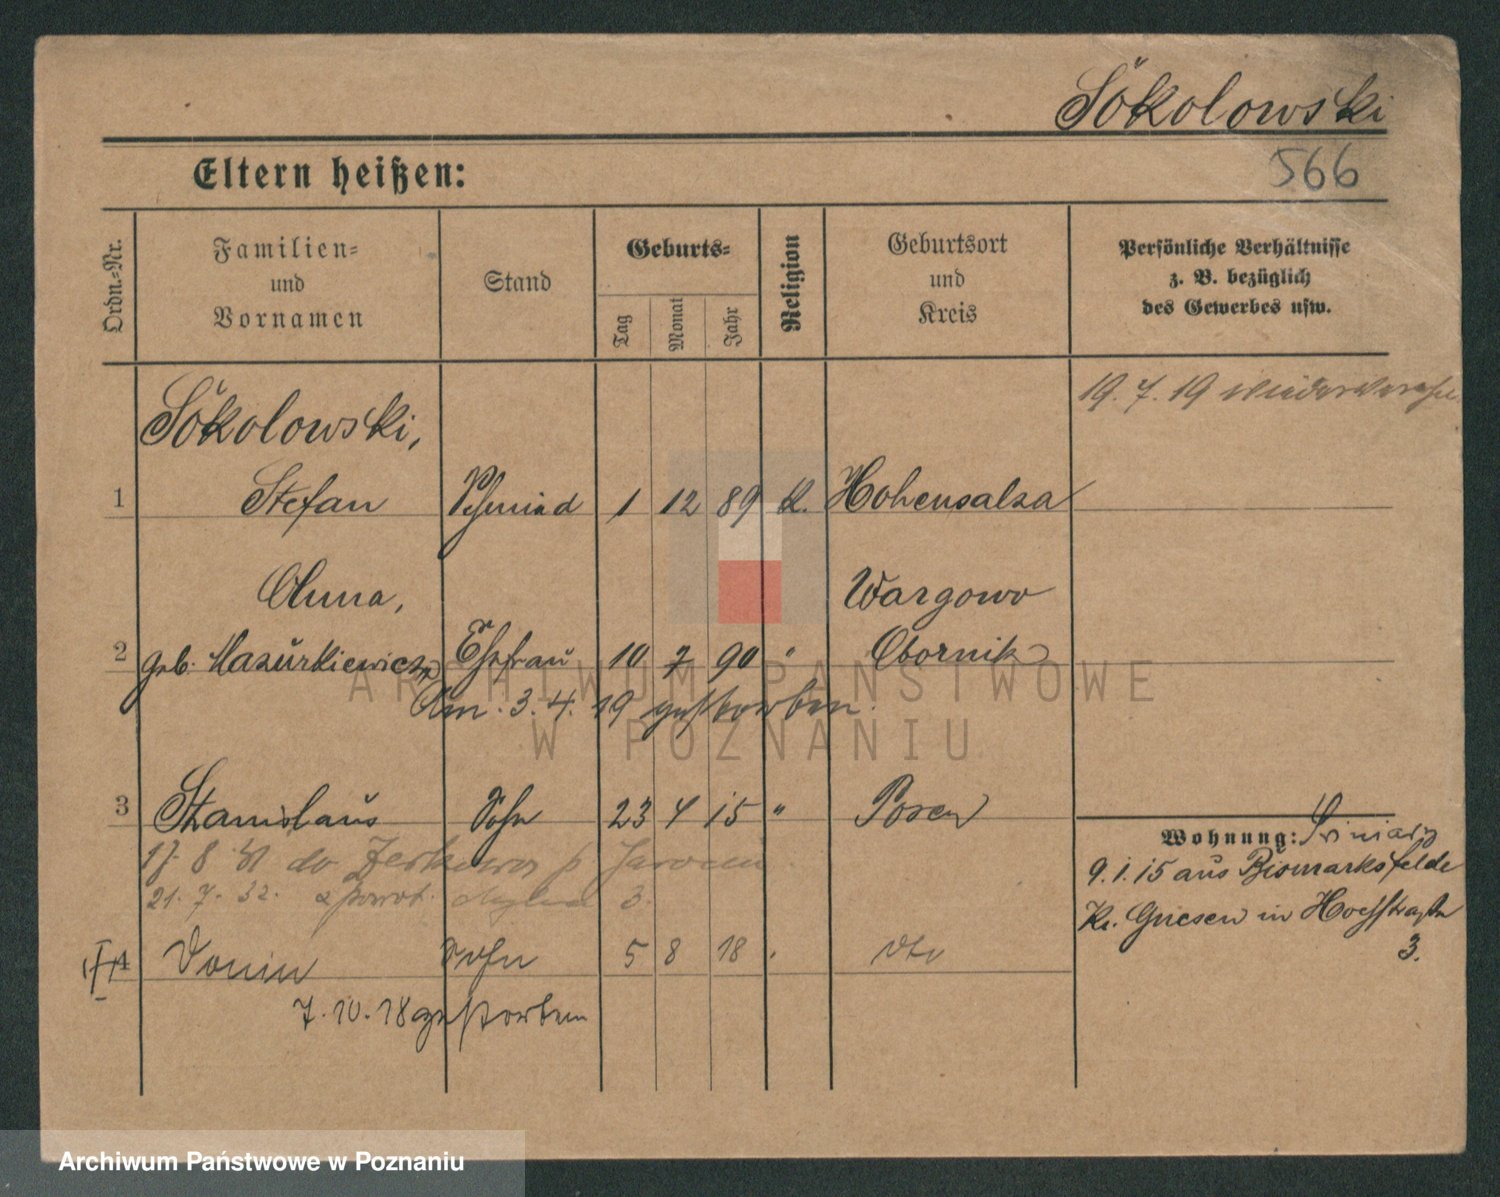 Sokolowski
566
Eltern heißen:
Ordn.-Nr.
Familien- und Vornamen
Stand
Geburts-
Tag
Monat
Jahr
Religion
Geburtsort und Kreis
Persönliche Verhältnisse z. B. bezüglich des Gewerbes usw.
19. 7. 19
Sokolowski,
1 Stefan Schmied 1 12 89 k. Hohensalza
Anna, Wargowo
2 geb. Mazurkiewicz Ehefrau 10 7 90 " Obornik
Am. 3. 4. 19 gestorben.
3 Stanislaus Sohn 23 4 15 " Posen
Wohnung:
17 8 31 do Żerkowa p Jarocin
9.1.15 aus Bismarksfelde
21. 7. 32. z powrot. 3.
Kr. Gnesen in
3.
4 Sohn 5 8 18 dto
7. 10. 18 gestorben
ARCHIWUM PAŃSTWOWE
W POZNANIU
Archiwum Państwowe w Poznaniu